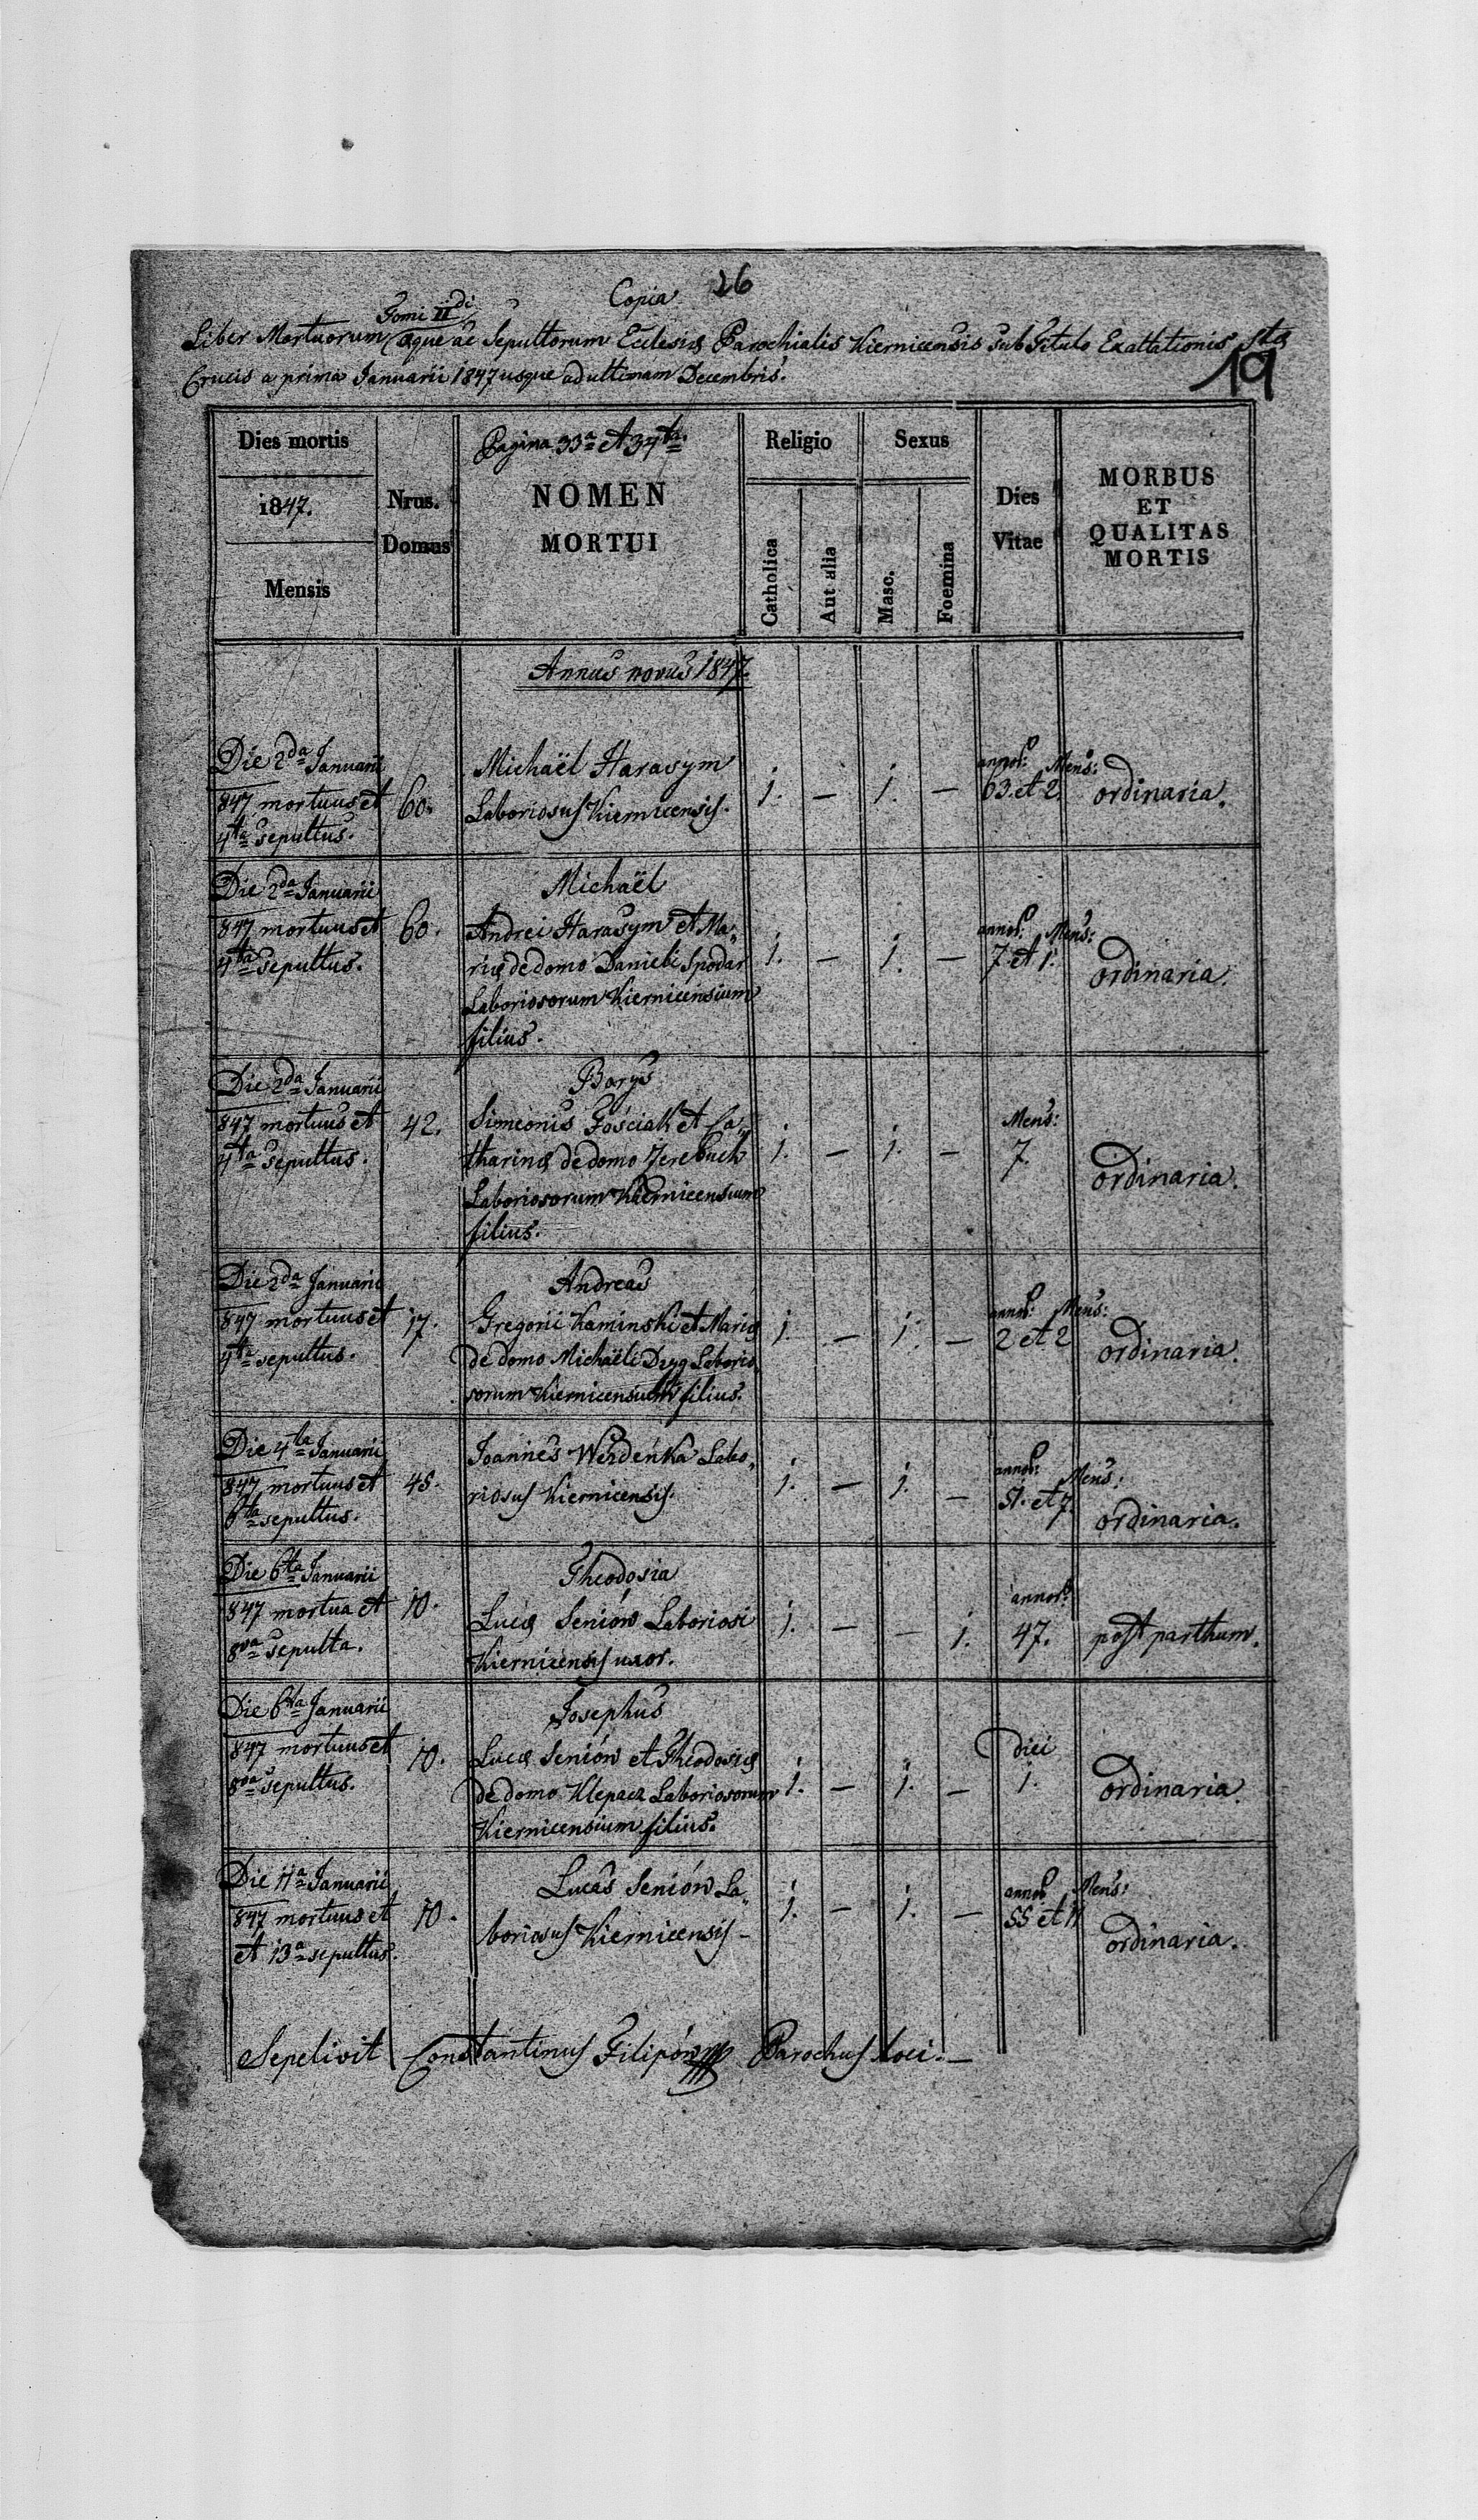 Copia 26
Tomi II di
Liber Mortuorum æque ac Sepultorum Ecclesiæ Parochialis Kiernicensis sub Titulo Exaltationis Stæ
Crucis a prima Januarii 1847 usque ad ultimam Decembris.
19
Dies mortis
1847.
Mensis
Nrus.
Domus
Pagina 33a et 34ta.
NOMEN
MORTUI
Religio
Catholica
Aut alia
Sexus
Masc.
Foemina
Dies
Vitae
MORBUS
ET
QUALITAS
MORTIS
Annus novus 1847.
Die 2da Januarii
847 mortuus et
4ta sepultus.
60.
Michaël Harasym
Laboriosus Kiernicensis.
1. — 1. —
annor: Mens:
63. et 2.
ordinaria.
Die 2da Januarii
847 mortuus et
4ta sepultus.
60.
Michaël
Andrei Harasym et Ma„
riæ de domo Danieli Spodar
Laboriosorum Kiernicensium
filius.
1. — 1. —
annor: Mens:
7. et 1.
ordinaria.
Die 2da Januarii
847 mortuus et
4ta sepultus.
42.
Borys
Simeonis Gościak et Ca„
tharinæ de domo Jerebuch
Laboriosorum Kiernicensium
filius.
1. — 1. —
Mens:
7.
ordinaria.
Die 2da Januarii
847 mortuus et
4ta sepultus.
17.
Andreas
Gregorii Kaminski et Mariæ
de domo Michaëli Dzyg Laborio„
sorum Kiernicensium filius.
1. — 1. —
annor: Mens:
2 et 2
ordinaria.
Die 4ta Januarii
847 mortuus et
6ta sepultus.
45.
Joannes Werdeńka Labo„
riosus Kiernicensis.
1. — 1. —
annor: Mens:
51. et 7.
ordinaria.
Die 6ta Januarii
847 mortua et
8va sepulta.
10.
Theodosia
Lucæ Seniów Laboriosi
Kiernicensis uxor.
1. — — 1.
annor:
47.
post parthum.
Die 6ta Januarii
847 mortuus et
8va sepultus.
10.
Josephus
Lucæ Senión et Theodosiæ
de domo Klepacz Laboriosorum
Kiernicensium filius.
1. — 1. —
Diei
1.
ordinaria.
Die 11a Januarii
847 mortuus et
et 13a sepultus.
10.
Lucas Senión La„
boriosus Kiernicensis —
1. — 1. —
annor Mens:
55 et 11
ordinaria.
Sepelivit Constantinus Filipów Parochus loci. —